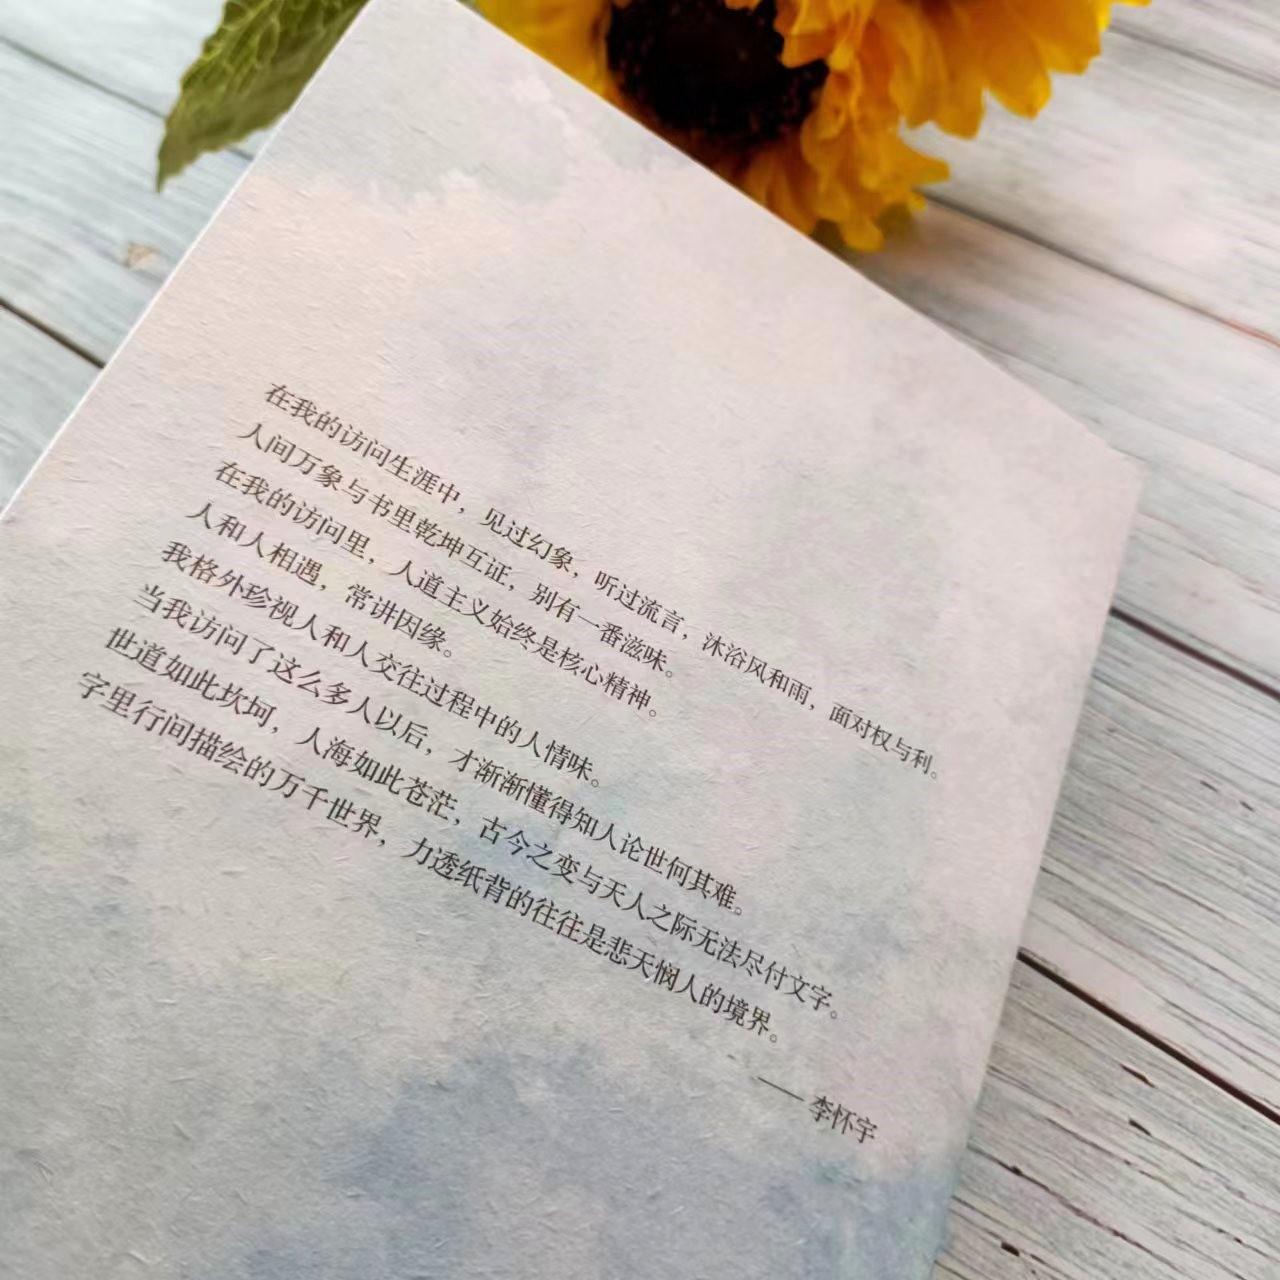 在我的访问生涯中，见过幻象，听过流言，沐浴风和雨，面对权与利。
人间万象与书里乾坤互证，别有一番滋味。
在我的访问里，人道主义始终是核心精神。
人和人相遇，常讲因缘。
我格外珍视人和人交往过程中的人情味。
当我访问了这么多人以后，才渐渐懂得知人论世何其难。
世道如此坎坷，人海如此苍茫，古今之变与天人之际无法尽付文字。
字里行间描绘的万千世界，力透纸背的往往是悲天悯人的境界。
—— 李怀宇